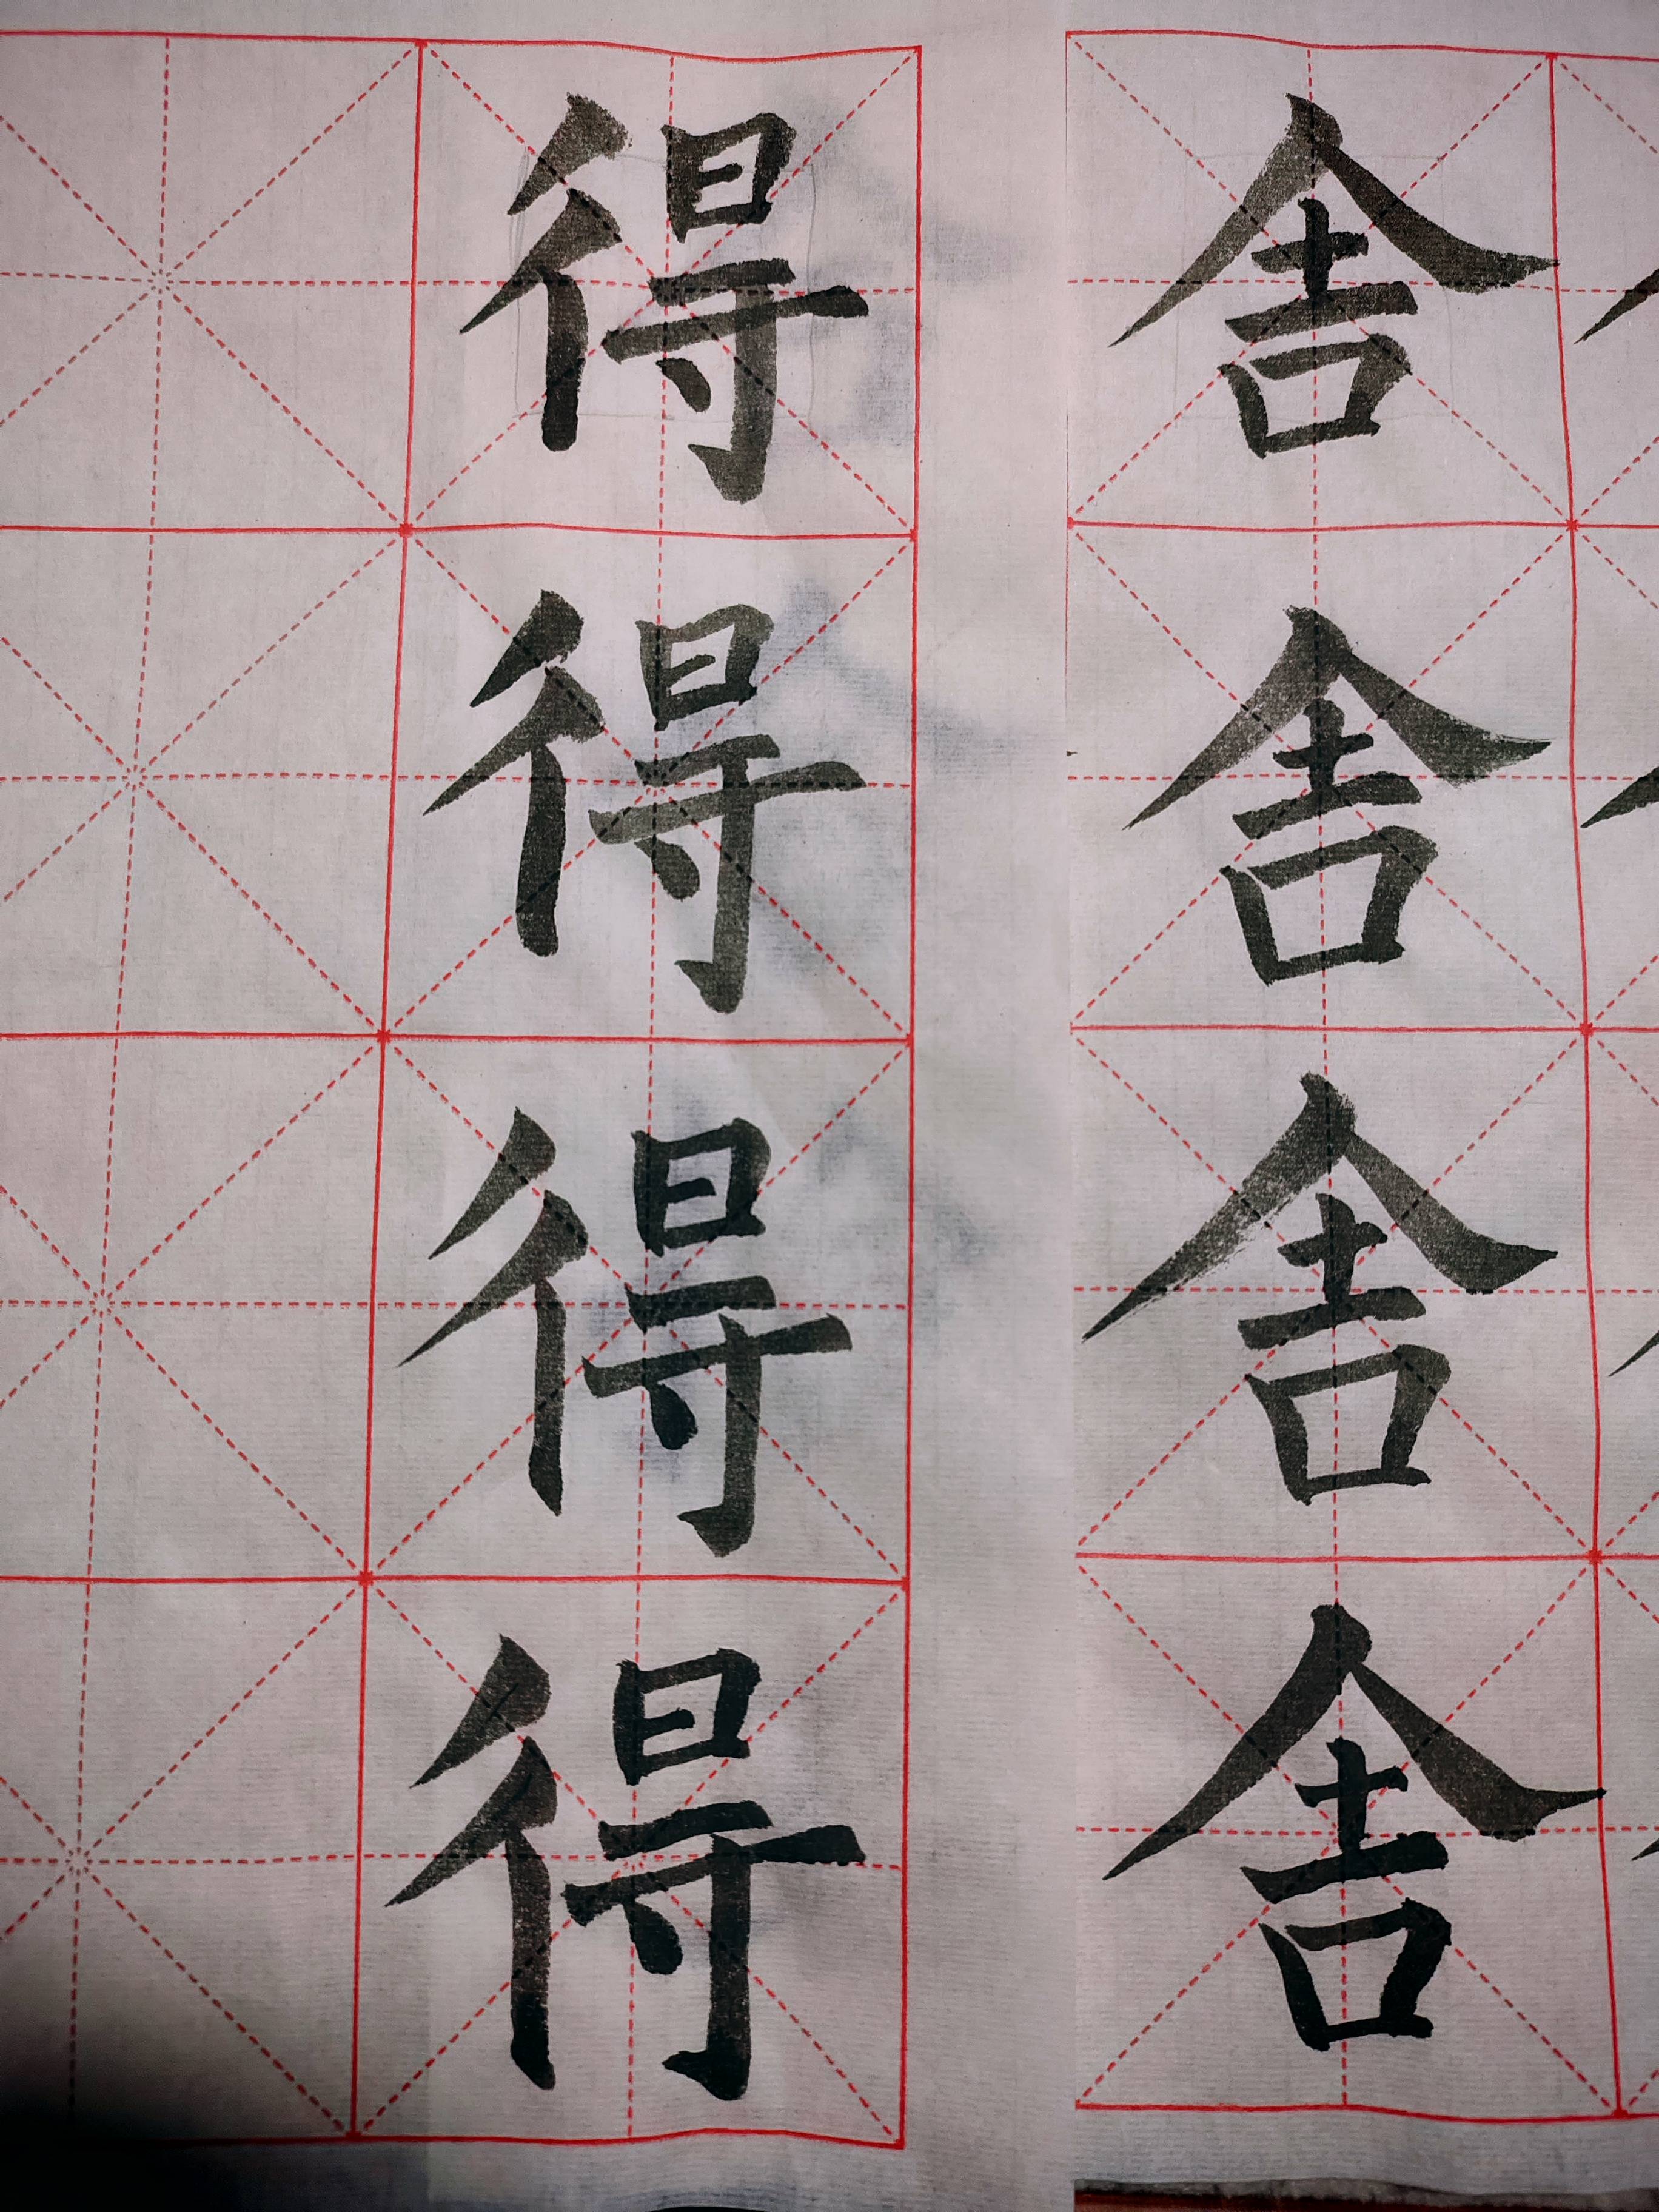 舍舍舍舍
得得得得